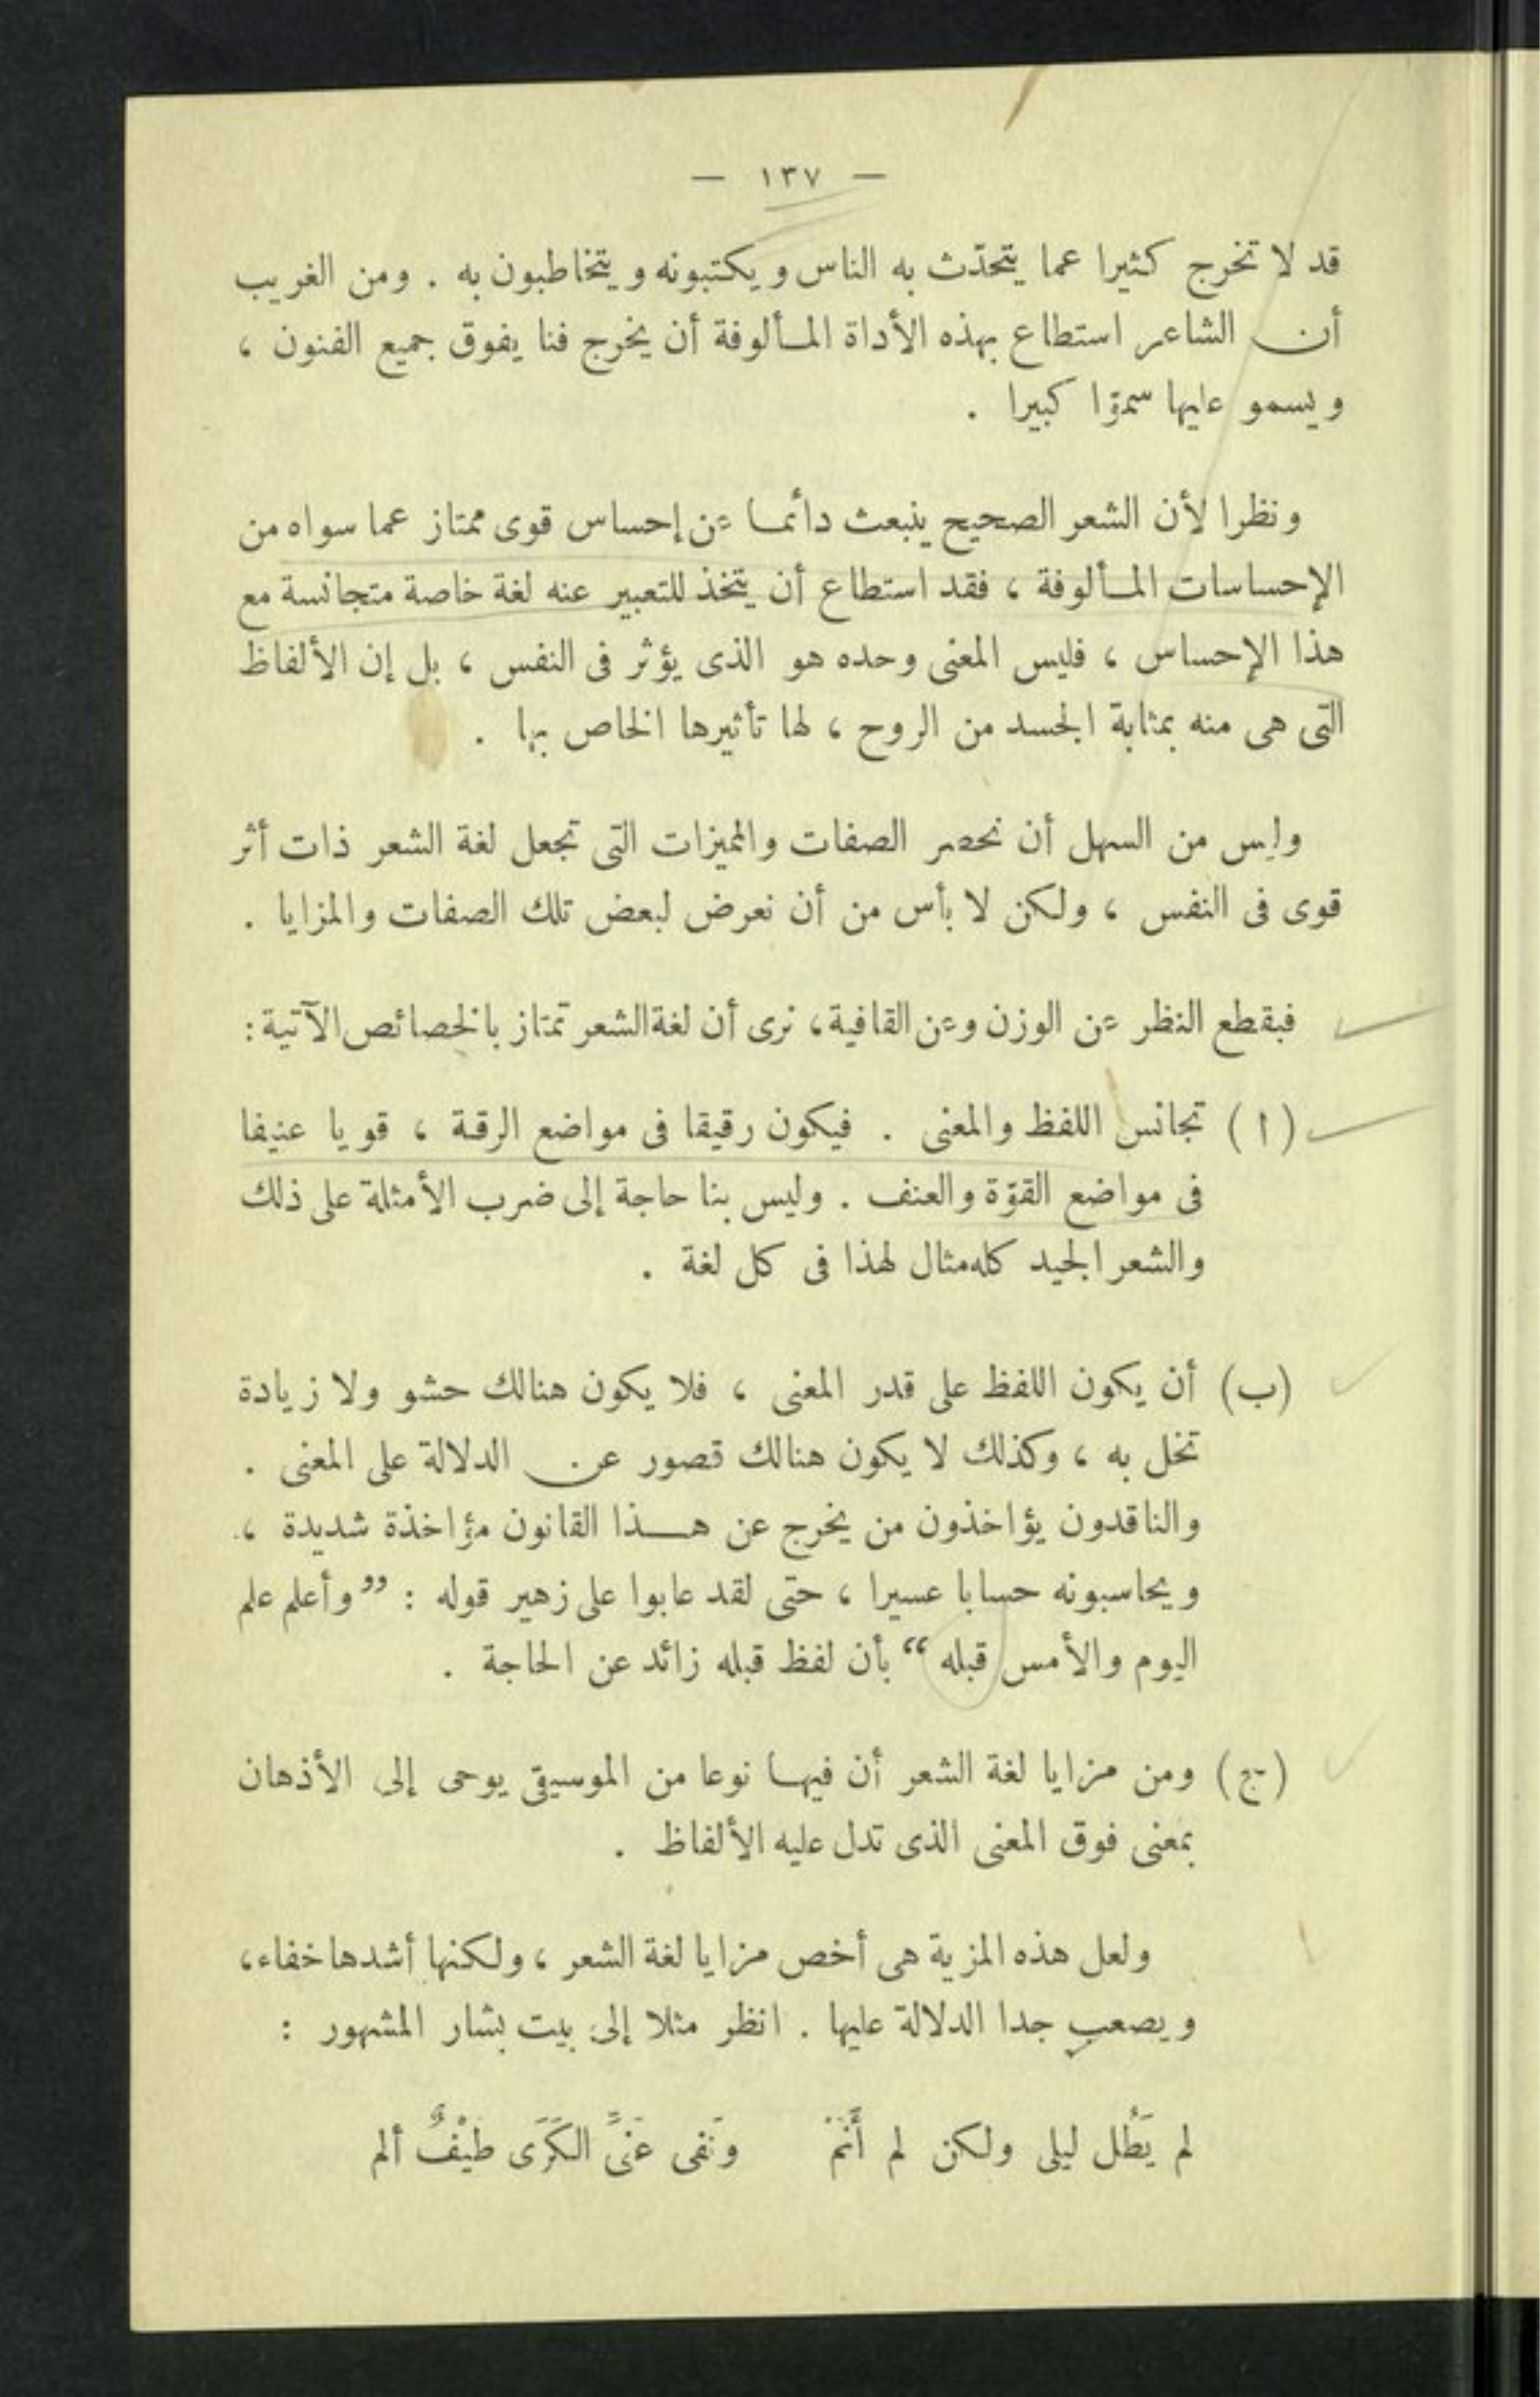 — ١٣٧ —
قد لا تخرج كثيرا عما يتحدّث به الناس ويكتبونه ويتخاطبون به . ومن الغريب
أن الشاعر استطاع بهذه الأداة المألوفة أن يخرج فنا يفوق جميع الفنون ،
ويسمو عليها سموّا كبيرا .
ونظرا لأن الشعر الصحيح ينبعث دائما عن إحساس قوى ممتاز عما سواه من
الإحساسات المألوفة ، فقد استطاع أن يتخذ للتعبير عنه لغة خاصة متجانسة مع
هذا الإحساس ، فليس المعنى وحده هو الذى يؤثر فى النفس ، بل إن الألفاظ
التى هى منه بمثابة الجسد من الروح ، لها تأثيرها الخاص بها .
وليس من السهل أن نحصر الصفات والمميزات التى تجعل لغة الشعر ذات أثر
قوى فى النفس ، ولكن لا بأس من أن نعرض لبعض تلك الصفات والمزايا .
فبقطع النظر عن الوزن وعن القافية، نرى أن لغة الشعر تمتاز بالخصائص الآتية :
(ا) تجانس اللفظ والمعنى . فيكون رقيقا فى مواضع الرقة ، قويا عنيفا
فى مواضع القوّة والعنف . وليس بنا حاجة إلى ضرب الأمثلة على ذلك
والشعر الجيد كله مثال لهذا فى كل لغة .
(ب) أن يكون اللفظ على قدر المعنى ، فلا يكون هنالك حشو ولا زيادة
تخل به ، وكذلك لا يكون هنالك قصور عن الدلالة على المعنى .
والناقدون يؤاخذون من يخرج عن هذا القانون مؤاخذة شديدة ،
ويحاسبونه حسابا عسيرا ، حتى لقد عابوا على زهير قوله : ”وأعلم علم
اليوم والأمس قبله“ بأن لفظ قبله زائد عن الحاجة .
(ج) ومن مزايا لغة الشعر أن فيها نوعا من الموسيقى يوحى إلى الأذهان
بمعنى فوق المعنى الذى تدل عليه الألفاظ .
ولعل هذه المزية هى أخص مزايا لغة الشعر ، ولكنها أشدها خفاء،
ويصعب جدا الدلالة عليها . انظر مثلا إلى بيت بشار المشهور :
لم يَطُل ليلى ولكن لم أَنَمْ ونَفى عَنىَّ الكَرَى طَيْفٌ ألم